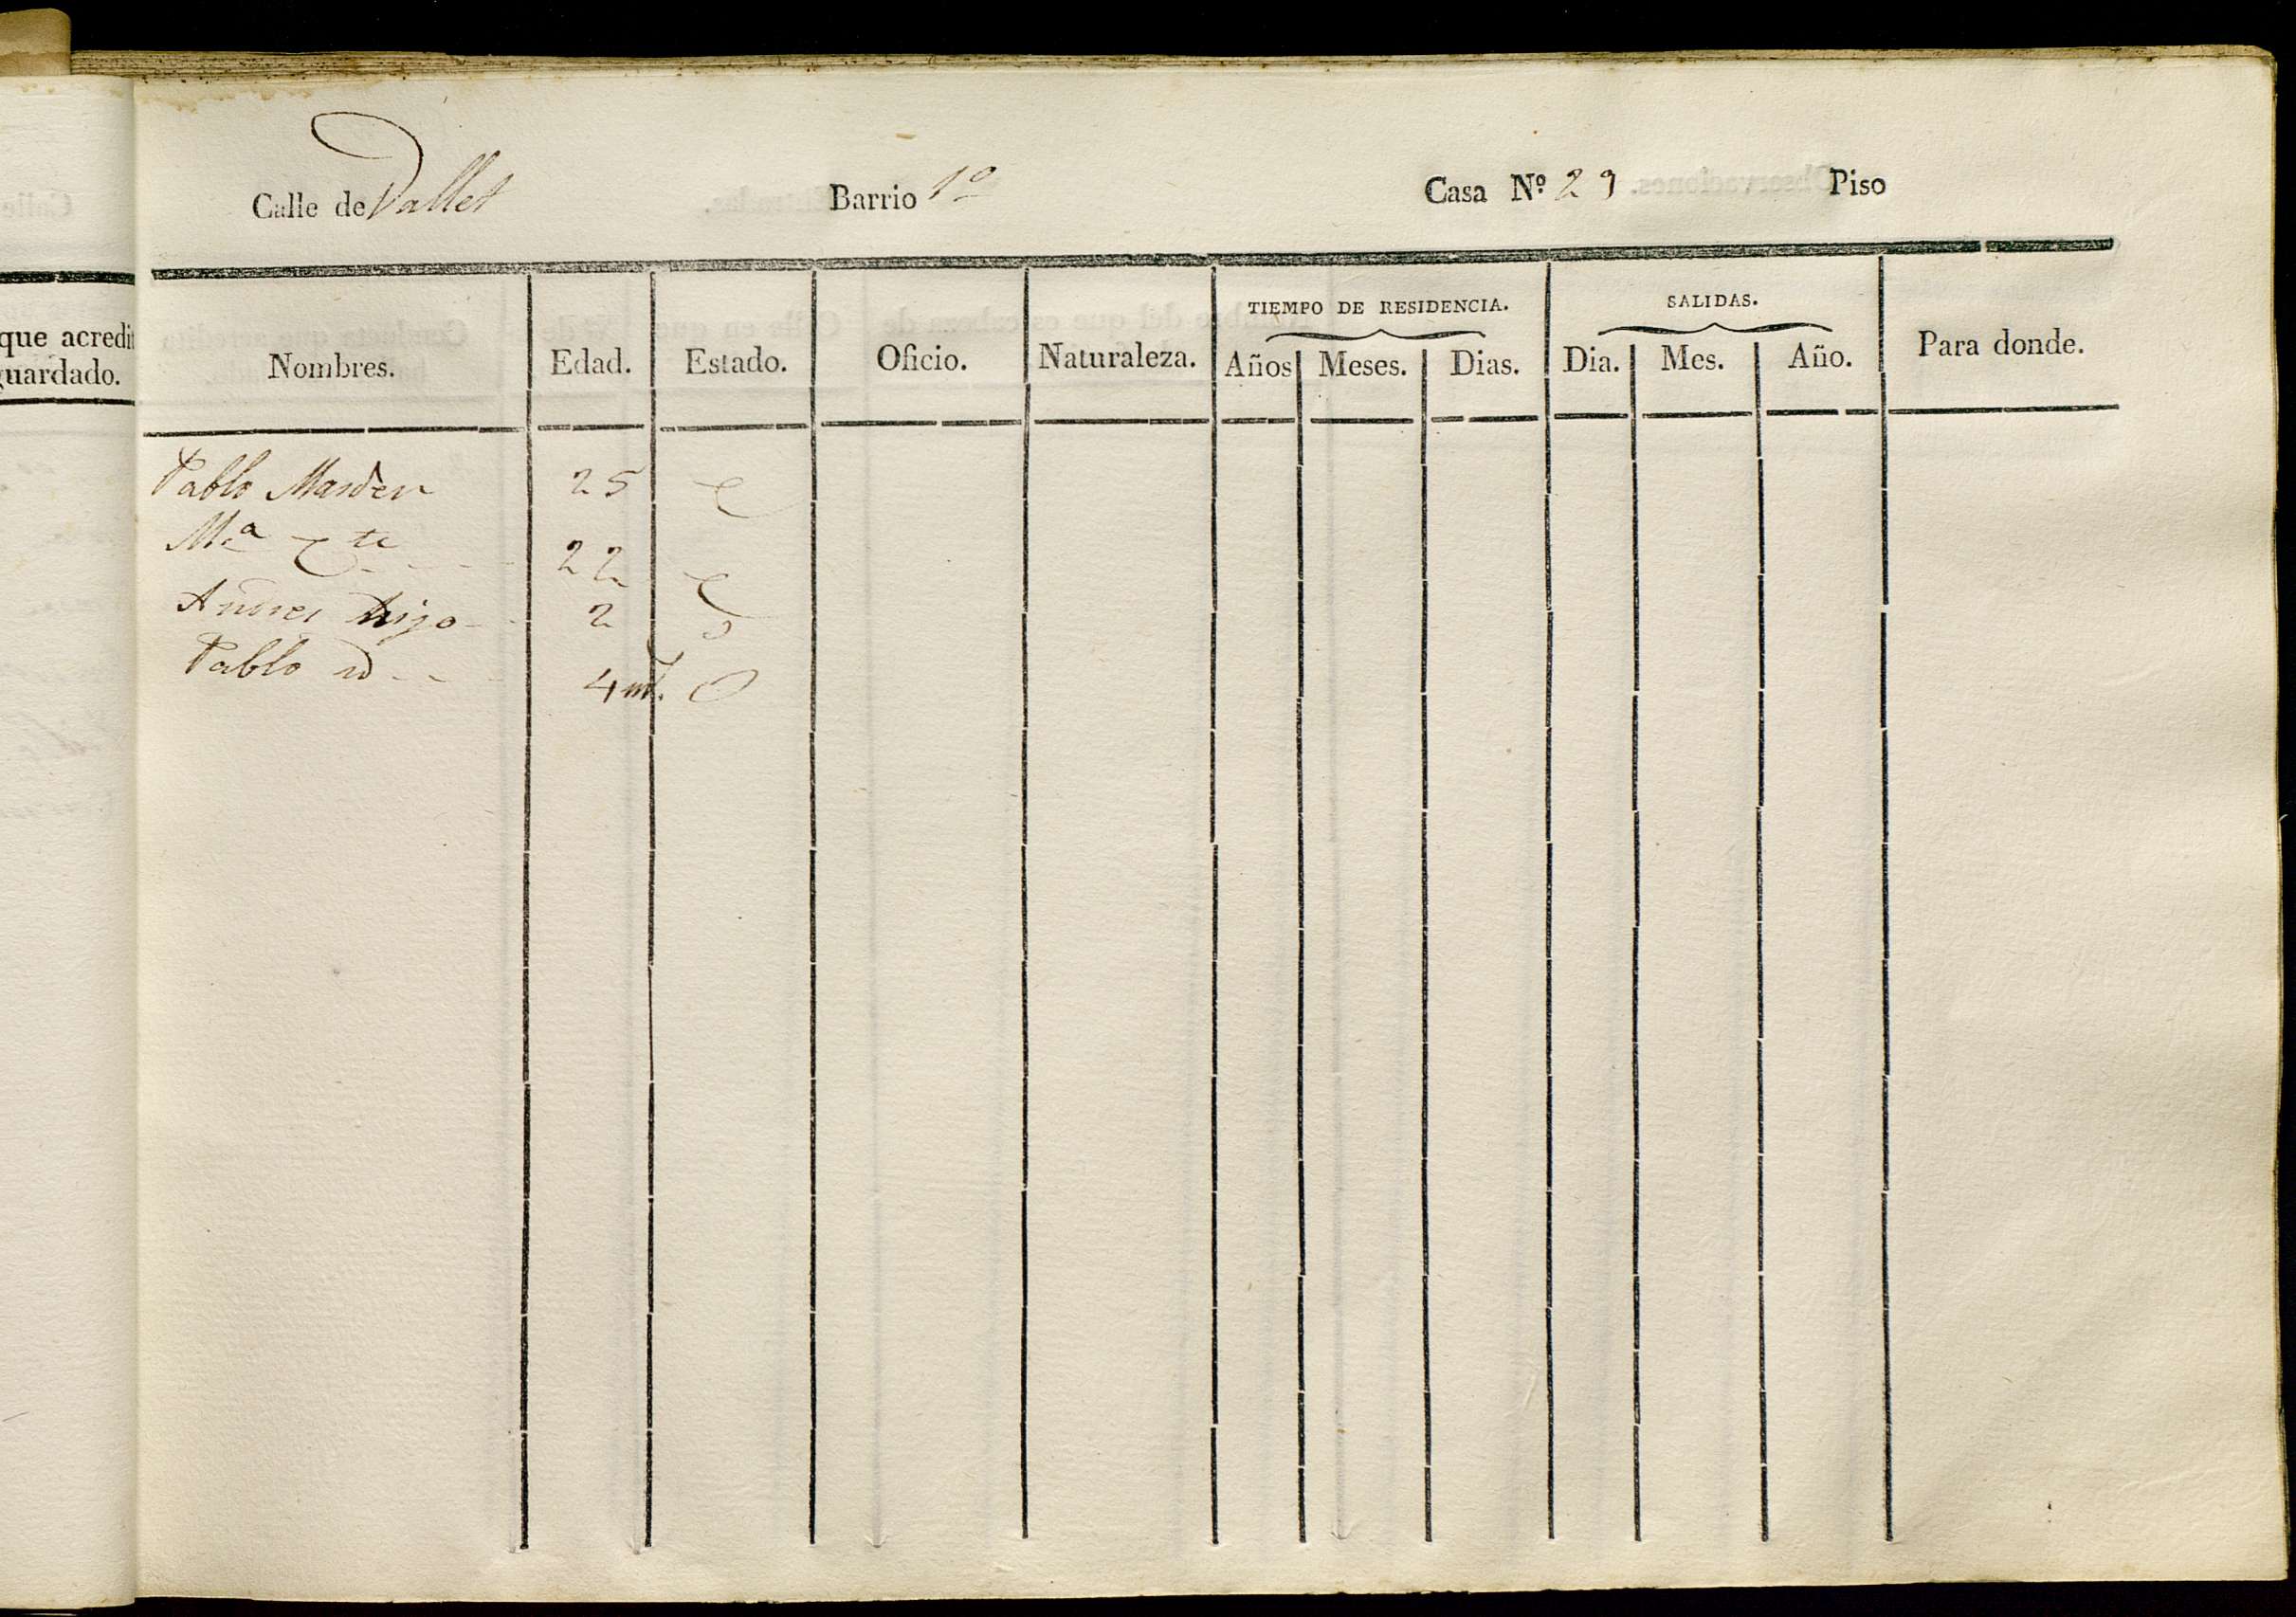 Calle de Vallet Barrio 1º Casa Nº 29 Piso
que acredit
guardado.
Nombres. Edad. Estado. Oficio. Naturaleza. TIEMPO DE RESIDENCIA. Años Meses. Dias. SALIDAS. Dia. Mes. Año. Para donde.
Pablo 25 C
Mª 22 C
Andres hijo 2 S
Pablo id 4 m.